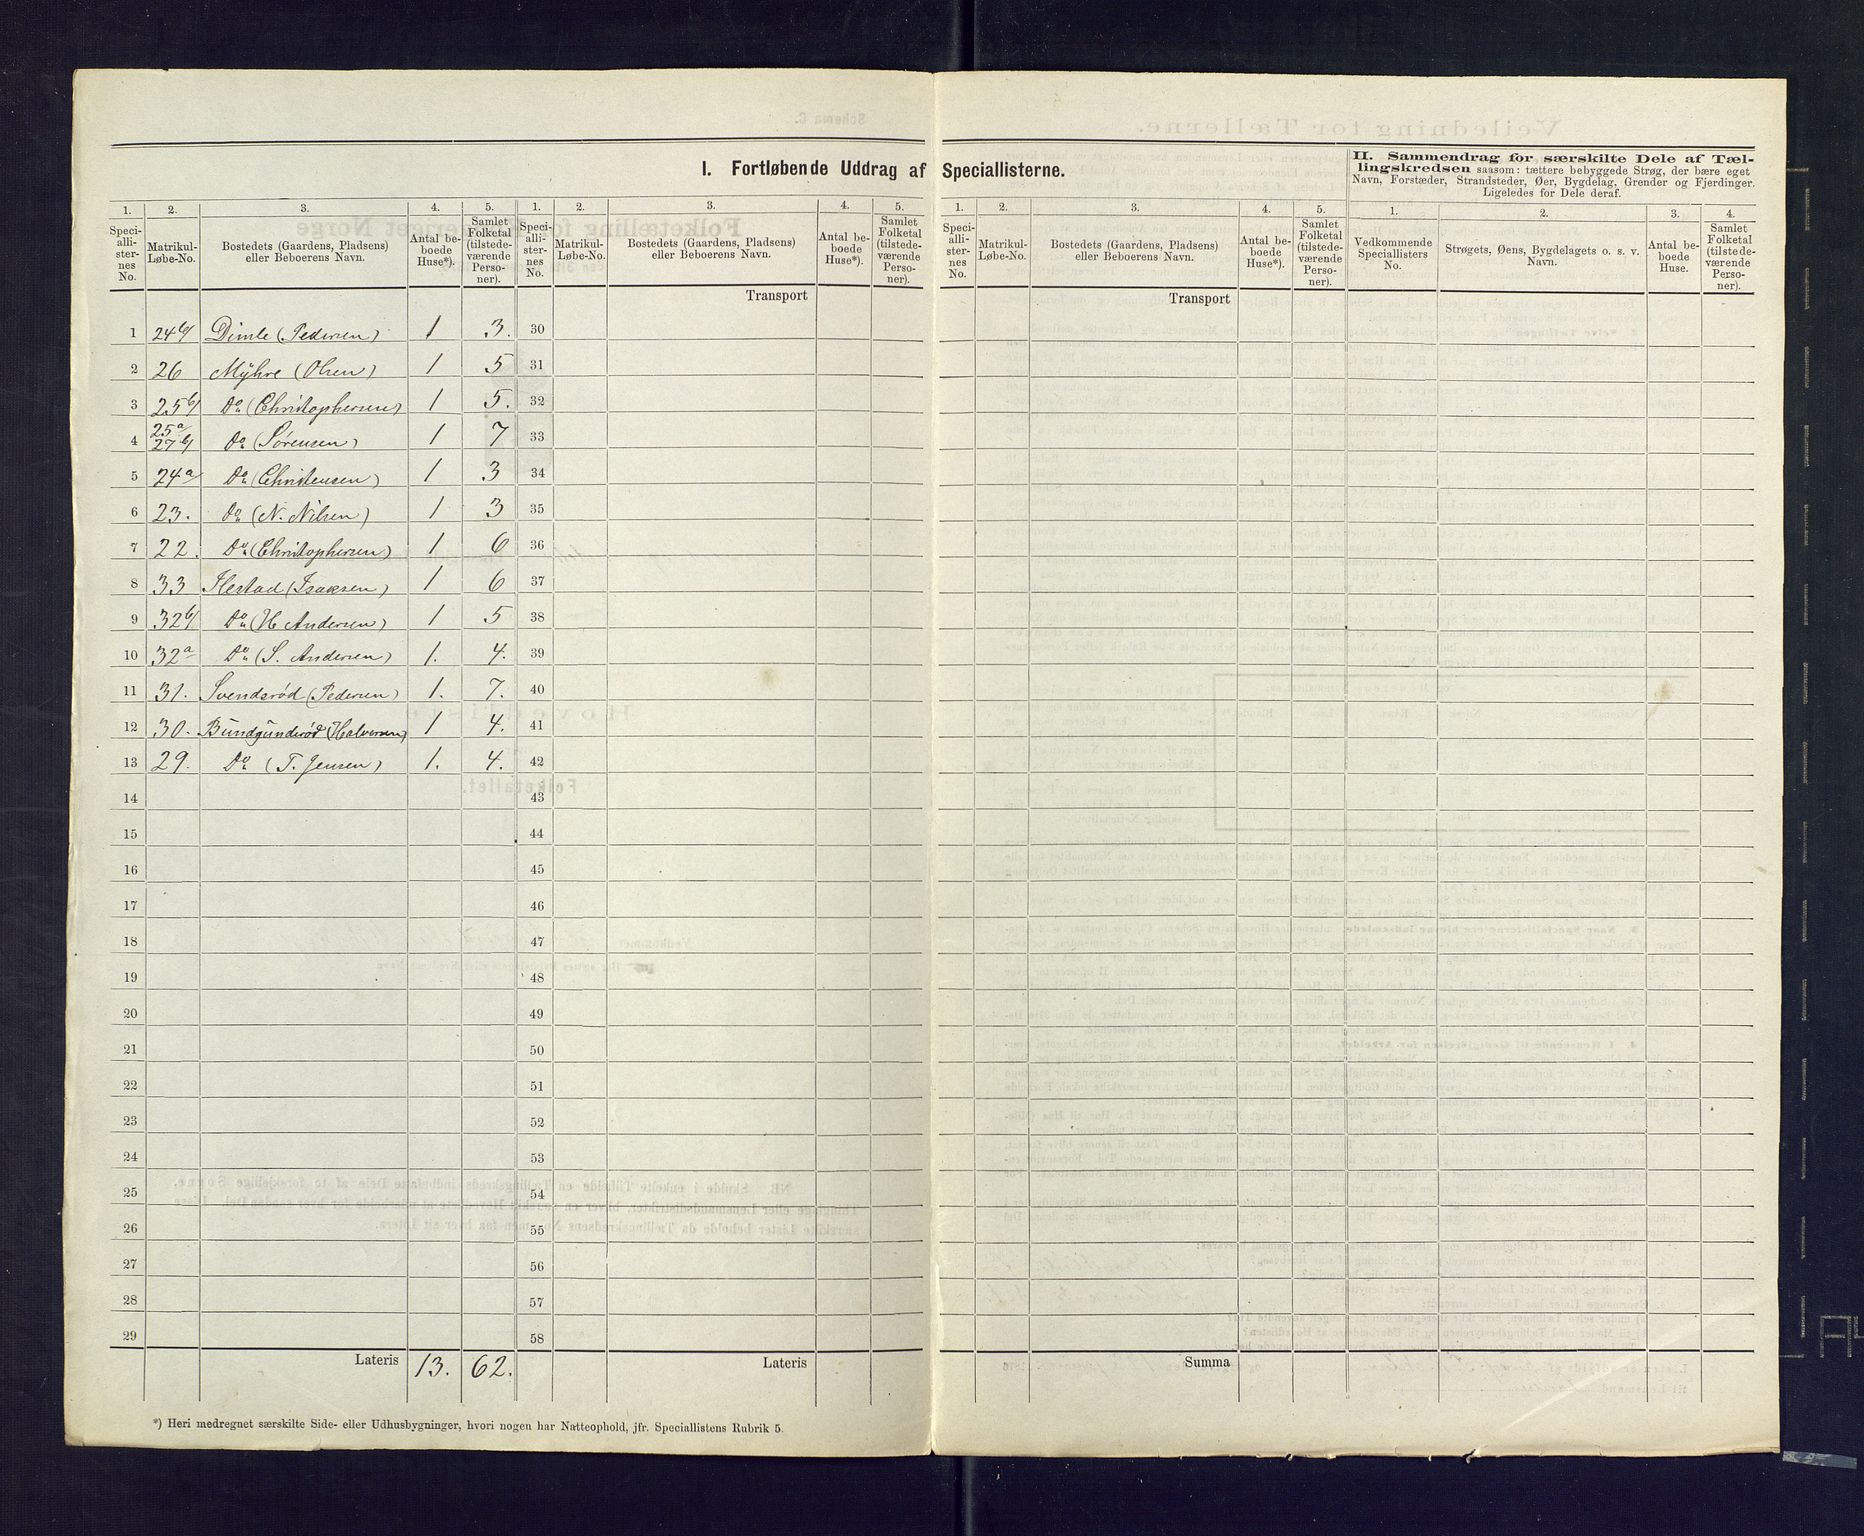 I. Fortløbende Uddrag af Speciallisterne.
II. Sammendrag for særskilte Dele af Tæl-
lingskredsen saasom: tættere bebyggede Strøg, der bære eget
Navn, Forstæder, Strandsteder, Øer, Bygdelag, Grender og Fjerdinger.
Ligeledes for Dele deraf.
1. 2. 3. 4. 5. 1. 2. 3. 4. 5. 1. 2. 3. 4. 5. 1. 2. 3. 4.
Speci-
allis-
ter-
nes
No.
Matrikul-
Løbe-No.
Bostedets (Gaardens, Pladsens)
eller Beboerens Navn.
Antal be-
boede
Huse*).
Samlet
Folketal
(tilstede-
værende
Perso-
ner).
Speci-
allis-
ter-
nes
No.
Matrikul-
Løbe-No.
Bostedets (Gaardens, Pladsens)
eller Beboerens Navn.
Antal be-
boede
Huse*).
Samlet
Folketal
(tilstede-
værende
Perso-
ner).
Speci-
allis-
ter-
nes
No.
Matrikul-
Løbe-No.
Bostedets (Gaardens, Pladsens)
eller Beboerens Navn.
Antal be-
boede
Huse*).
Samlet
Folketal
(tilstede-
værende
Perso-
ner).
Vedkommende
Speciallisters
No.
Strøgets, Øens, Bygdelagets o. s. v.
Navn.
Antal be-
boede
Huse.
Samlet
Folketal
(tilstede-
værende
Perso-
ner).
Transport Transport
1 24b Dimle (Pedersen) 1 3. 30
2 26 Myhre (Olsen) 1 5 31
3 25b Do (Christophersen) 1 5. 32
4 25a 27b Do (Sørensen) 1 7 33
5 24a Do (Christensen) 1 3 34
6 23. Do (N. Nilsen) 1 3 35
7 22. Do (Christophersen) 1 6 36
8 33 Ilestad (Isaksen) 1 6 37
9 32b Do (H. Andersen) 1 5 38
10 32a Do (S. Andersen) 1. 4. 39
11 31. Svendsrød (Pedersen) 1. 7. 40
12 30. Bundgunderød (Halvorsen) 1 4. 41
13 29. Do (T. Jensen) 1. 4. 42
14 43
15 44
16 45
17 46
18 47
19 48
20 49
21 50
22 51
23 52
24 53
25 54
26 55
27 56
28 57
29 58
Lateris 13. 62. Lateris Summa
*) Heri medregnet særskilte Side- eller Udhusbygninger, hvori nogen har Natteophold, jfr. Speciallistens Rubrik 5.